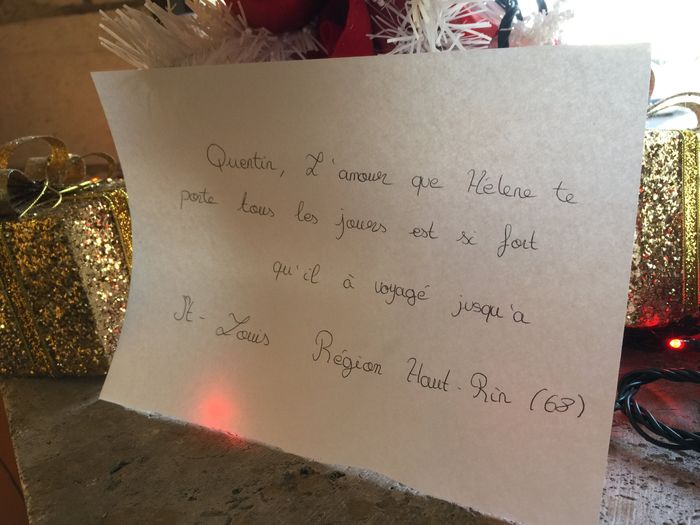 Quentin, L'amour que Hélene te
porte tous les jours est si fort
qu'il à voyagé jusqu'a
St-Louis Région Haut-Rin (68)